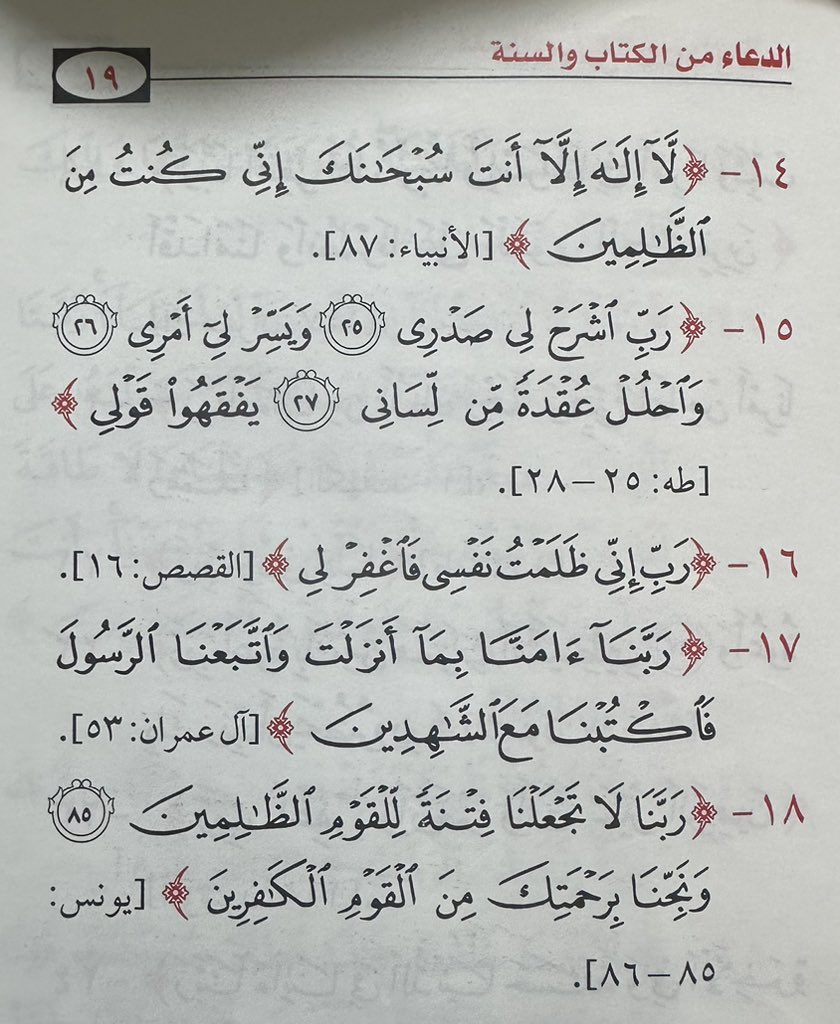 الدعاء من الكتاب والسنة
١٩
١٤- ﴿لَّآ إِلَـٰهَ إِلَّآ أَنتَ سُبْحَـٰنَكَ إِنِّى كُنتُ مِنَ
ٱلظَّـٰلِمِينَ ﴾ [الأنبياء: ٨٧].
١٥- ﴿رَبِّ ٱشْرَحْ لِى صَدْرِى ٢٥ وَيَسِّرْ لِىٓ أَمْرِى ٢٦
وَٱحْلُلْ عُقْدَةً مِّن لِّسَانِى ٢٧ يَفْقَهُوا۟ قَوْلِى ﴾
[طه: ٢٥ – ٢٨].
١٦- ﴿رَبِّ إِنِّى ظَلَمْتُ نَفْسِى فَٱغْفِرْ لِى ﴾ [القصص: ١٦].
١٧- ﴿ رَبَّنَآ ءَامَنَّا بِمَآ أَنزَلْتَ وَٱتَّبَعْنَا ٱلرَّسُولَ
فَٱكْتُبْنَا مَعَ ٱلشَّـٰهِدِينَ ﴾ [آل عمران: ٥٣].
١٨- ﴿رَبَّنَا لَا تَجْعَلْنَا فِتْنَةً لِّلْقَوْمِ ٱلظَّـٰلِمِينَ ٨٥
وَنَجِّنَا بِرَحْمَتِكَ مِنَ ٱلْقَوْمِ ٱلْكَـٰفِرِينَ ﴾ [يونس:
٨٥ – ٨٦].